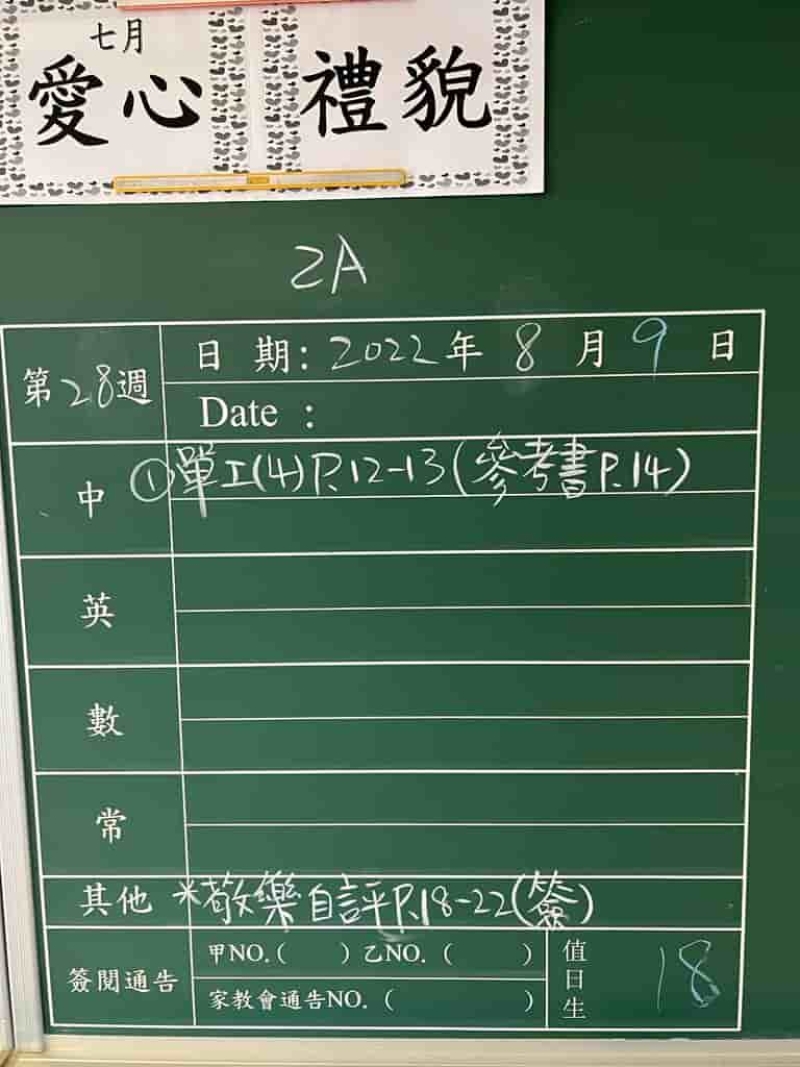 七月
愛心 禮貌
2A
第28週
日 期：2022年 8 月 9 日
Date :
中 ①單工(4)P.12-13(參考書P.14)
英
數
常
其他 *敬樂自評P.18-22(簽)
簽閱通告 甲NO.( ) 乙NO. ( )
家教會通告NO. ( )
值日生 18